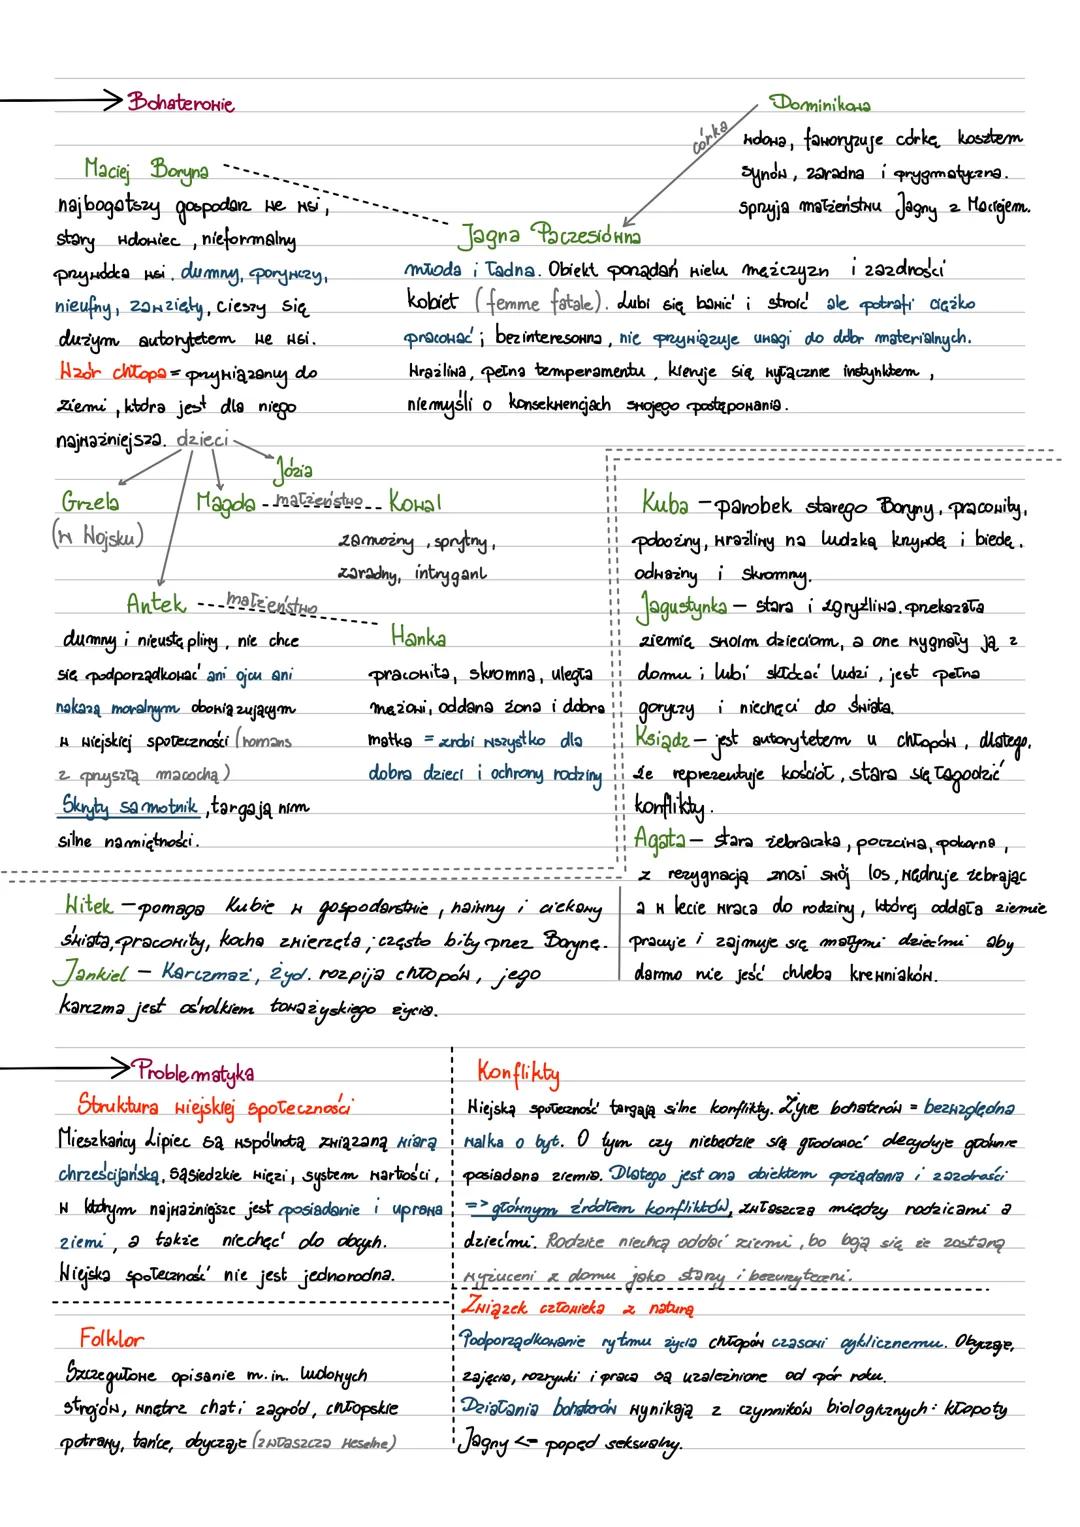 Bohaterowie
Dominikowa
córka
wdowa, faworyzuje córkę kosztem
synów, zaradna i prygmatyczna.
sprzyja małżeństwu Jagny z Maciejem.
Maciej Boryna
najbogatszy gospodarz we wsi,
stary wdowiec, nieformalny
przywódca wsi. dumny, porywczy,
nieufny, zawzięty, cieszy się
dużym autorytetem we wsi.
Wzór chłopa = przywiązany do
ziemi, która jest dla niego
najważniejsza. dzieci
Jagna Paczesiówna
młoda i ładna. Obiekt porządań wielu mężczyzn i zazdrości
kobiet (femme fatale). Lubi się bawić i stroić ale potrafi ciężko
pracować; bezinteresowna, nie przywiązuje uwagi do dóbr materialnych.
Wrażliwa, pełna temperamentu, kieruje się wyłącznie instynktem,
niemyśli o konsekwencjach swojego postępowania.
Józia
Grzela
(w Wojsku)
Magda małżeństwo Kowal
zamożny, sprytny,
zaradny, intrygant
Antek małżeństwo
Hanka
dumny i nieustępliwy, nie chce
się podporządkować ani ojcu ani
nakazą moralnym obowiązującym
w wiejskiej społeczności (romans
z przyszłą macochą)
Skryty samotnik, targają nim
silne namiętności.
pracowita, skromna, uległa
mężowi, oddana żona i dobra
matka = zrobi wszystko dla
dobra dzieci i ochrony rodziny
Kuba – parobek starego Boryny, pracowity,
pobożny, wrażliwy na ludzką krzywdę i biedę.
odważny i skromny.
Jagustynka – stara i zgryźliwa. przekazała
ziemię swoim dzieciom, a one wygnały ją z
domu; lubi skłócać ludzi, jest pełna
goryczy i niechęci do świata.
Ksiądz – jest autorytetem u chłopów, dlatego,
że reprezentuje kościół, stara się łagodzić
konflikty.
Agata – stara żebraczka, poczciwa, pokorna,
z rezygnacją znosi swój los, wędruje żebrając
a w lecie wraca do rodziny, której oddała ziemie
pracuje i zajmuje się małymi dziećmi aby
darmo nie jeść chleba krewniaków.
Witek – pomaga Kubie w gospodarstwie, naiwny i ciekawy
świata, pracowity, kocha zwierzęta; często bity przez Borynę.
Jankiel – Karczmaż, Żyd. rozpija chłopów, jego
karczma jest ośrolkiem toważyskiego życia.
Problematyka
Struktura wiejskiej społeczności
Mieszkańcy Lipiec są wspólnotą związaną wiarą
chrześcijańską, sąsiedzkie więzi, system wartości,
w którym najważniejsze jest posiadanie i uprawa
ziemi, a także niechęć do obcych.
Wiejska społeczność nie jest jednorodna.
Folklor
Szczegułowe opisanie m.in. ludowych
strojów, wnętrz chat i zagród, chłopskie
potrawy, tańce, obyczaje (zwłaszcza weselne)
Konflikty
Wiejską społeczność targają silne konflikty. Życie bohaterów = bezwzględna
walka o byt. O tym czy niebędzie się głodować decyduje głównie
posiadana ziemia. Dlatego jest ona obiektem pożądania i zazdrości
=> głównym źródłem konfliktów, zwłaszcza między rodzicami a
dziećmi. Rodzice niechcą oddać ziemi, bo boją się że zostaną
wyżuceni z domu jako starzy i bezużyteczni.
Związek człowieka z naturą
Podporządkowanie rytmu życia chłopów czasowi cyklicznemu. Obyczaje,
zajęcia, rozrywki i praca są uzależnione od pór roku.
Działania bohaterów wynikają z czynników biologicznych: kłopoty
Jagny <= popęd seksualny.